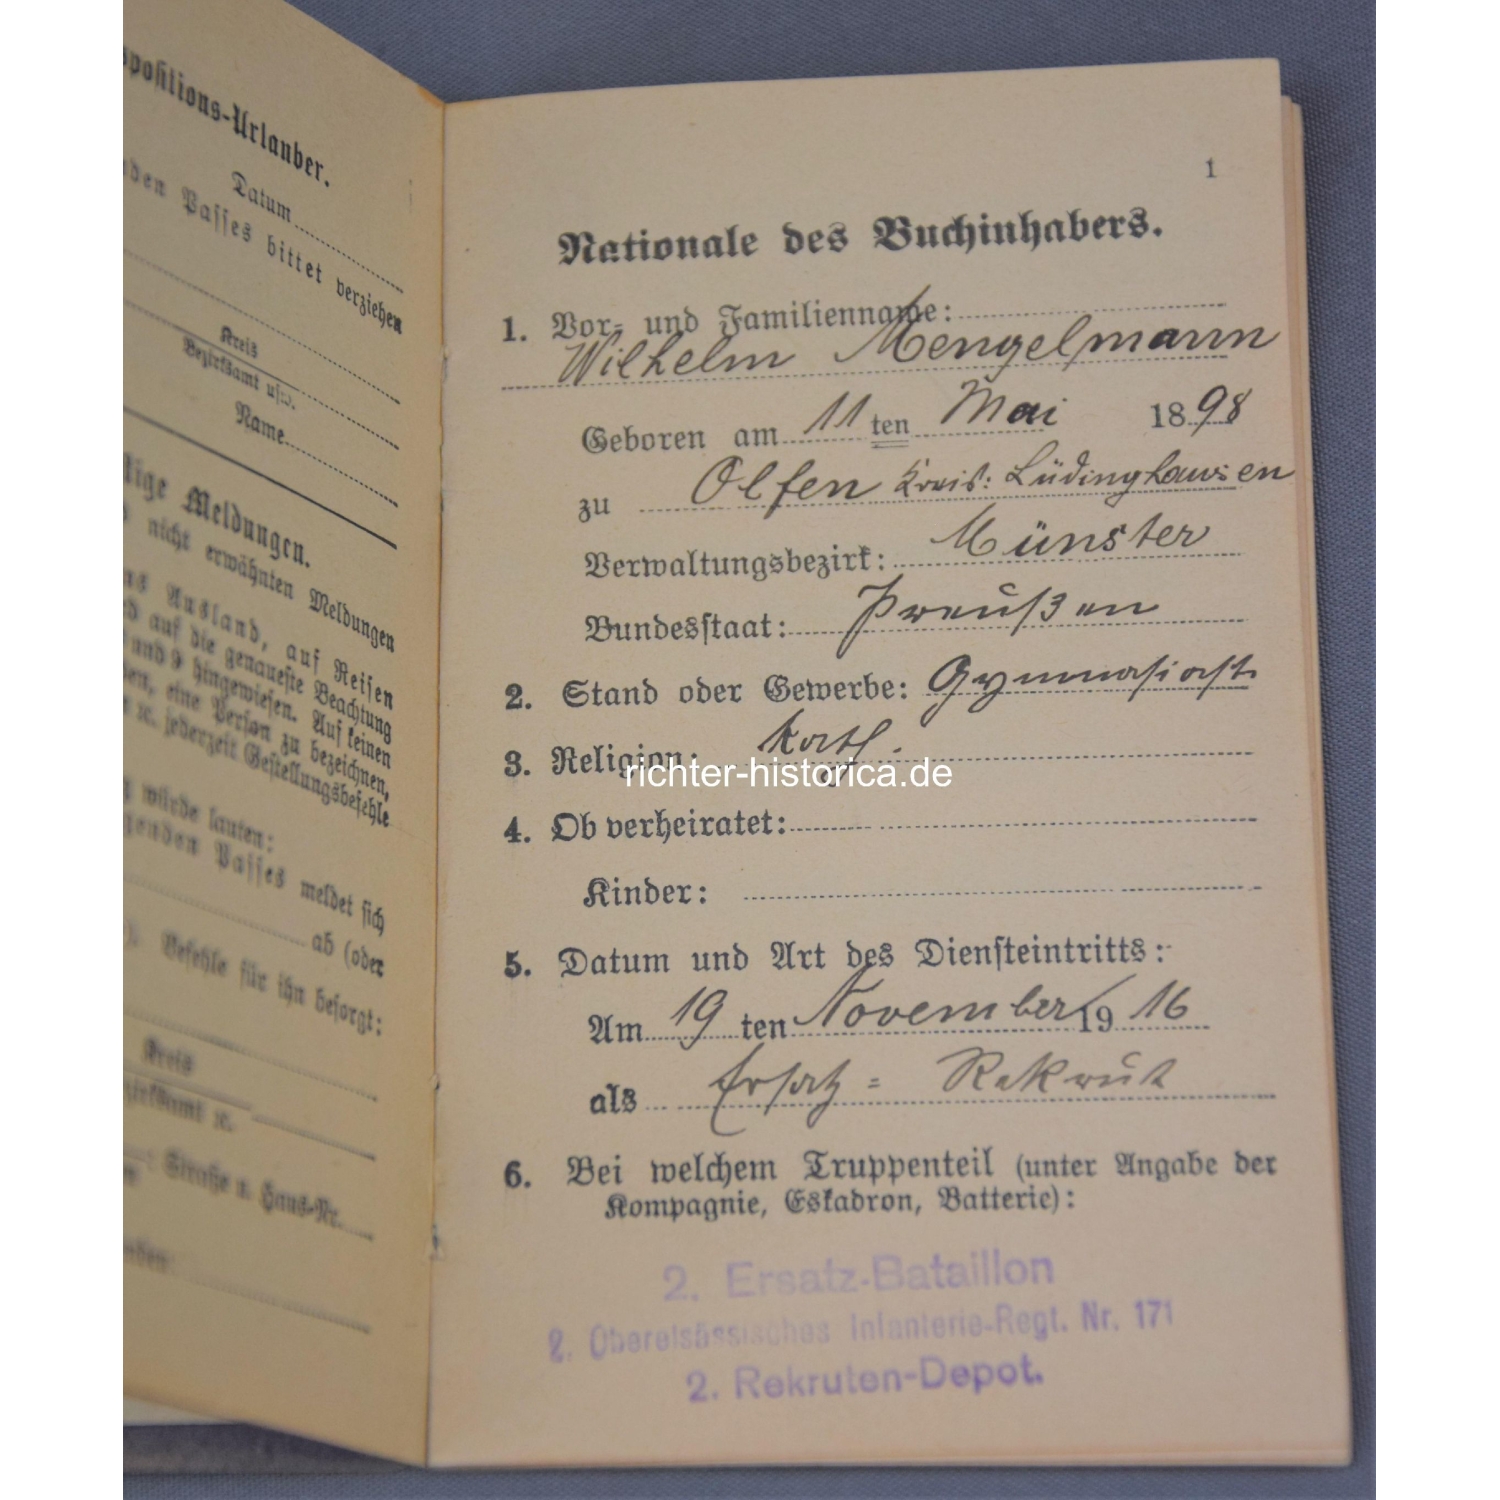 positions-Urlauber.
Datum
den Passes bittet verziehen
Kreis
Bezirksamt usw.
Name
Meldungen.
nicht erwähnten Meldungen
Ausland, auf Reisen
auf die genaueste Beachtung
und 9 hingewiesen. Auf keinen
eine Person zu bezeichnen,
jederzeit Gestellungsbefehle
würde lauten:
Passes meldet sich
ab (oder
Befehle für ihn besorgt:
Kreis
Straße u. Haus-Nr.
1
Nationale des Buchinhabers.
1. Vor- und Familienname:
Wilhelm Mengelmann
Geboren am 11 ten Mai 1898
zu Olfen Kreis: Lüdinghausen
Verwaltungsbezirk: Münster
Bundesstaat: Preußen
2. Stand oder Gewerbe: Gymnasiast
3. Religion: kath.
richter-historica.de
4. Ob verheiratet:
Kinder:
5. Datum und Art des Diensteintritts:
Am 19 ten November 1916
als Ersatz=Rekrut
6. Bei welchem Truppenteil (unter Angabe der
Kompagnie, Eskadron, Batterie):
2. Ersatz-Bataillon
2. Oberelsässisches Infanterie-Regt. Nr. 171
2. Rekruten-Depot.